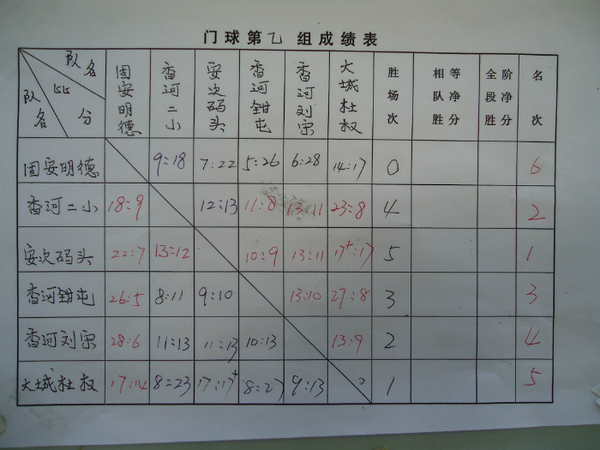 门球第乙组成绩表
队名 比分 队名 固安明德 香河二小 安次码头 香河钳屯 香河刘宋 大城杜权 胜场次 相等队净胜分 全阶段净胜分 名次
固安明德 9:18 7:22 5:26 6:28 14:17 0 6
香河二小 18:9 12:13 11:8 13:11 23:8 4 2
安次码头 22:7 13:12 10:9 13:11 17+:17 5 1
香河钳屯 26:5 8:11 9:10 13:10 27:8 3 3
香河刘宋 28:6 11:13 11:13 10:13 13:9 2 4
大城杜权 17:14 8:23 17:17+ 8:27 9:13 1 5